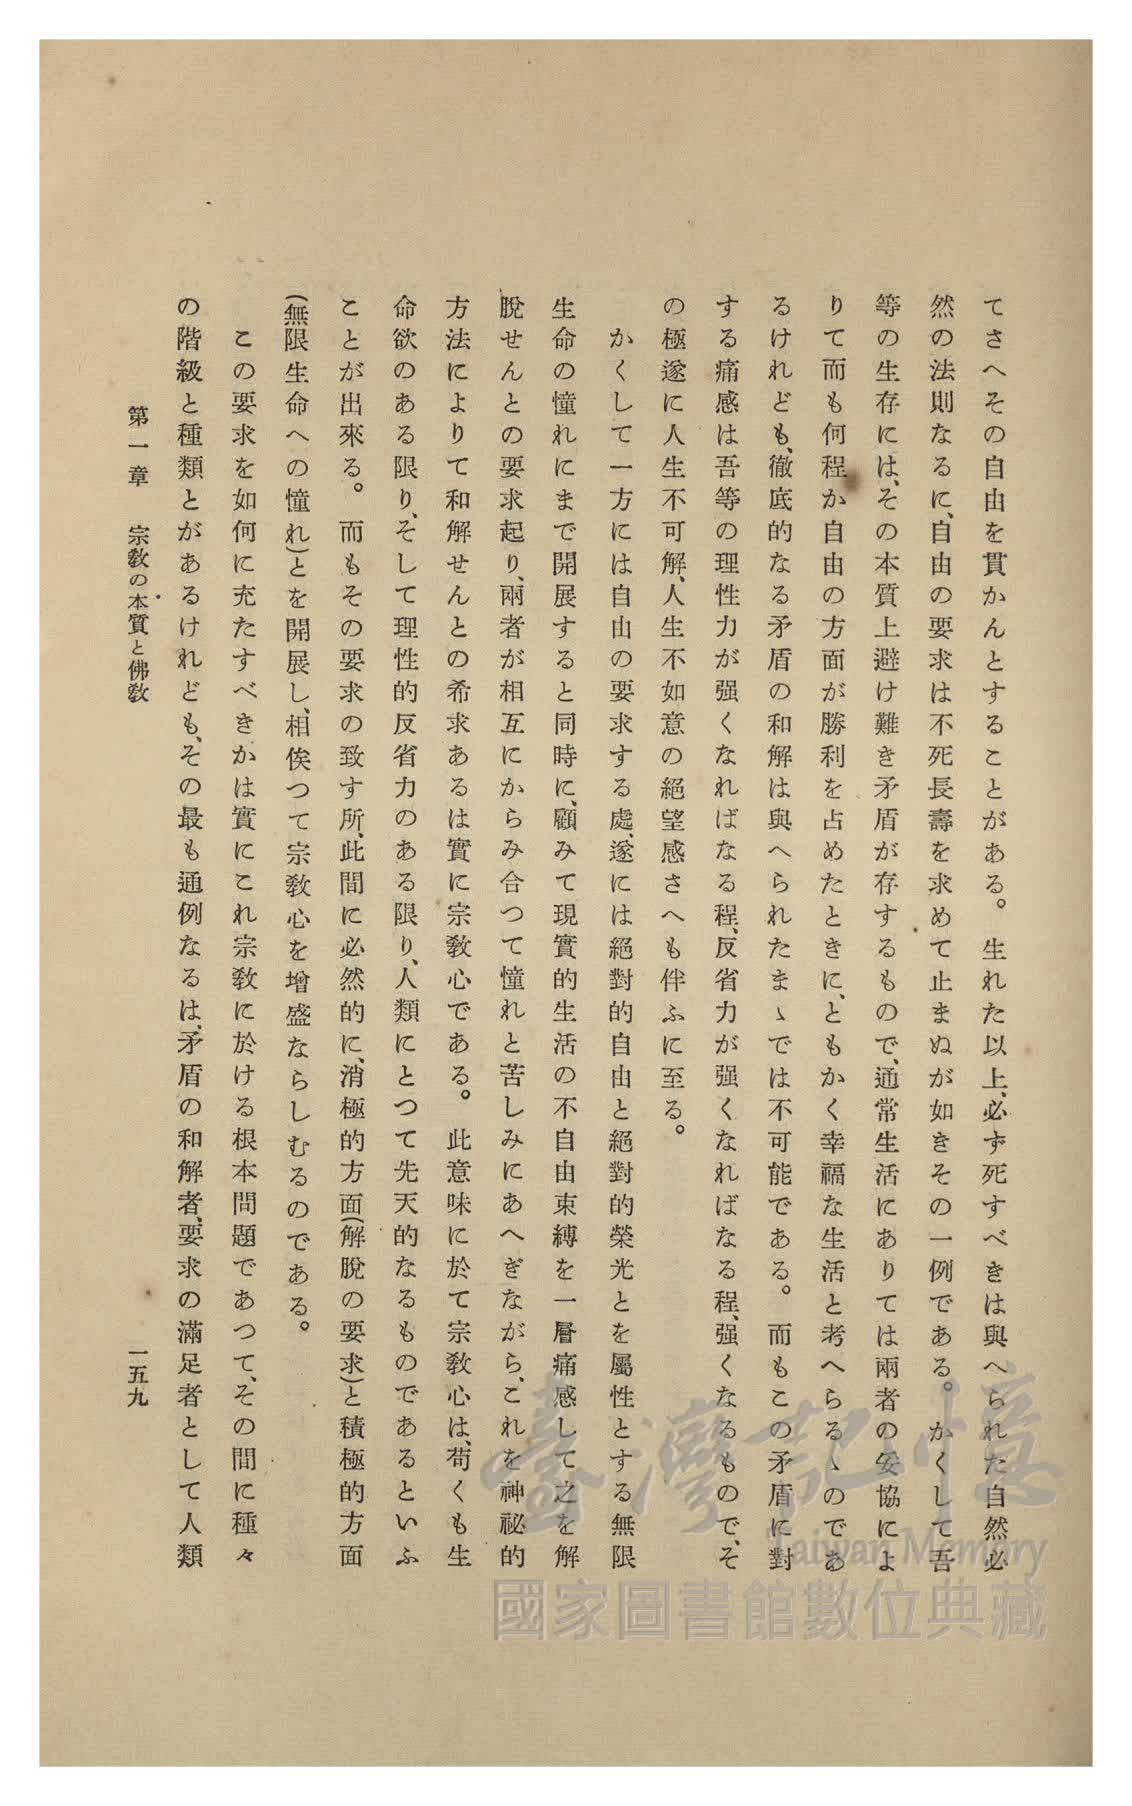 てさへその自由を貫かんとすることがある。生れた以上、必ず死すべきは與へられた自然必
然の法則なるに、自由の要求は不死長壽を求めて止まぬが如きその一例である。かくして吾
等の生存には、その本質上避け難き矛盾が存するもので、通常生活にありては兩者の妥協によ
りて而も何程か自由の方面が勝利を占めたときに、ともかく幸福な生活と考へらるゝのであ
るけれども、徹底的なる矛盾の和解は與へられたまゝでは不可能である。而もこの矛盾に對
する痛感は吾等の理性力が强くなればなる程、反省力が强くなればなる程、强くなるもので、そ
の極遂に人生不可解、人生不如意の絕望感さへも伴ふに至る。
かくして一方には自由の要求する處、遂には絕對的自由と絕對的榮光とを屬性とする無限
生命の憧れにまで開展すると同時に、顧みて現實的生活の不自由束縛を一層痛感して之を解
脫せんとの要求起り、兩者が相互にからみ合つて憧れと苦しみにあへぎながら、これを神祕的
方法によりて和解せんとの希求あるは實に宗敎心である。此意味に於て宗敎心は、苟くも生
命欲のある限り、そして理性的反省力のある限り、人類にとつて先天的なるものであるといふ
ことが出來る。而もその要求の致す所、此間に必然的に、消極的方面(解脫の要求)と積極的方面
(無限生命への憧れ)とを開展し、相俟つて宗敎心を增盛ならしむるのである。
この要求を如何に充たすべきかは實にこれ宗敎に於ける根本問題であつて、その間に種々
の階級と種類とがあるけれども、その最も通例なるは、矛盾の和解者、要求の滿足者として人類
第一章 宗敎の本質と佛敎 一五九
臺灣記憶
Taiwan Memory
國家圖書館數位典藏